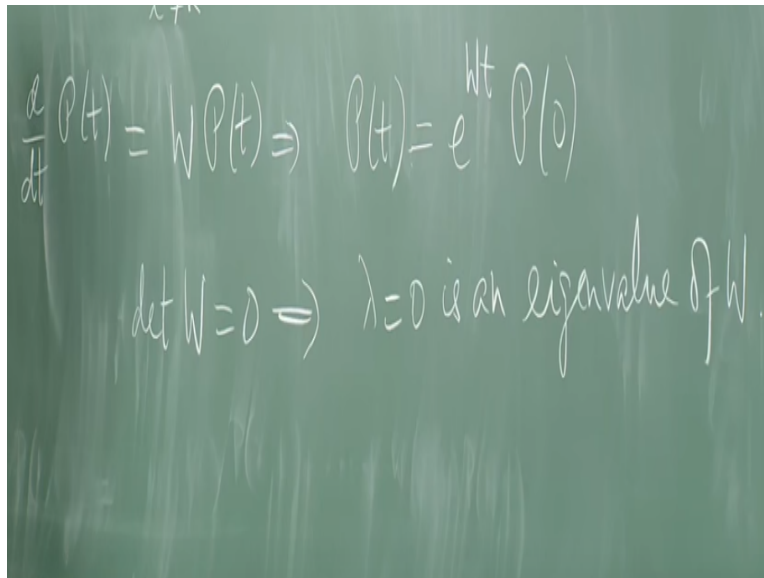 d/dt P(t) = W P(t) ⇒ P(t) = e^{Wt} P(0)
det W = 0 ⇒ λ = 0 is an eigenvalue of W.